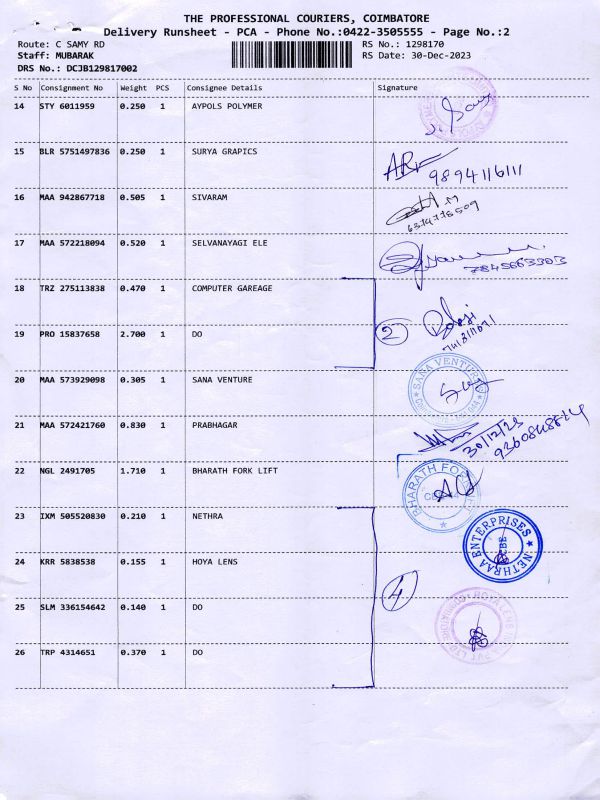 THE PROFESSIONAL COURIERS, COIMBATORE
Delivery Runsheet - PCA - Phone No.:0422-3505555 - Page No.:2
Route: C SAMY RD RS No.: 1298170
Staff: MUBARAK RS Date: 30-Dec-2023
DRS No.: DCJB129817002
S No Consignment No Weight PCS Consignee Details Signature
14 STY 6011959 0.250 1 AYPOLS POLYMER
15 BLR 5751497836 0.250 1 SURYA GRAPICS
9894116111
16 MAA 942867718 0.505 1 SIVARAM
17 MAA 572218094 0.520 1 SELVANAYAGI ELE
7845663303
18 TRZ 275113838 0.470 1 COMPUTER GAREAGE
2
19 PRO 15837658 2.700 1 DO
20 MAA 573929098 0.305 1 SANA VENTURE
SANA VENTURE
21 MAA 572421760 0.830 1 PRABHAGAR
30/12/23
22 NGL 2491705 1.710 1 BHARATH FORK LIFT
BHARATH FORK
23 IXM 505520830 0.210 1 NETHRA
NETHRAA ENTERPRISES
CBE
24 KRR 5838538 0.155 1 HOYA LENS
4
25 SLM 336154642 0.140 1 DO
26 TRP 4314651 0.370 1 DO